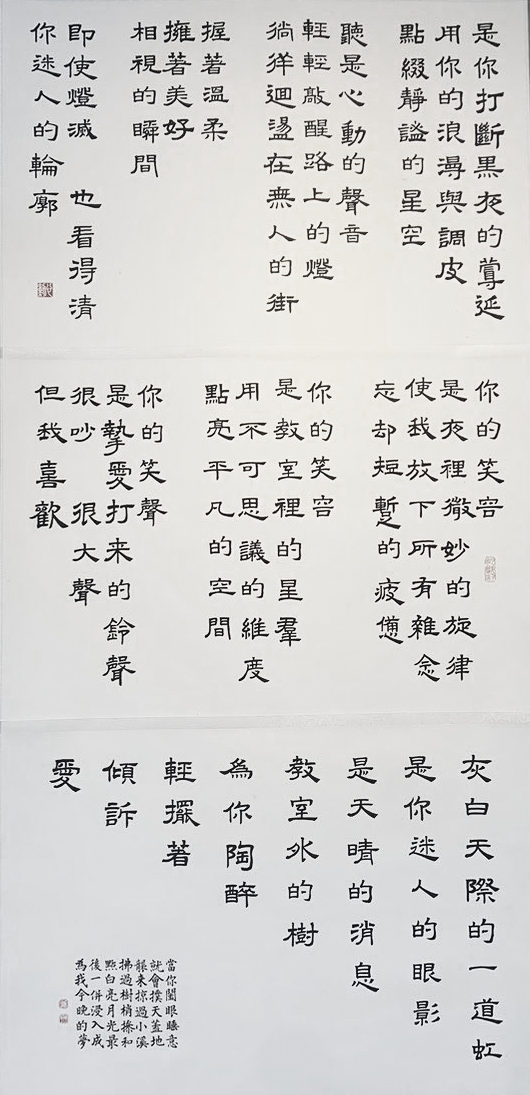 是你打斷黑夜的蔓延
用你的浪漫與調皮
點綴靜謐的星空
聽是心動的聲音
輕輕敲醒路上的燈
徜徉迴盪在無人的街
握著溫柔
擁著美好
相視的瞬間
即使燈滅 也看得清
你迷人的輪廓
你的笑容
是夜裡微妙的旋律
使我放下所有雜念
忘却短暫的疲憊
你的笑容
是教室裡的星羣
用不可思議的維度
點亮平凡的空間
你的笑聲
是摯愛打来的鈴聲
很吵 很大聲
但我喜歡
灰白天際的一道虹
是你迷人的眼影
是天晴的消息
教室外的樹
為你陶醉
輕擺著
傾訴
愛
當你闔眼睡意
就會撲天蓋地
来掠過小溪
拂過樹梢揉和
點白亮月光最
後一併浸入成
為我今晚的夢